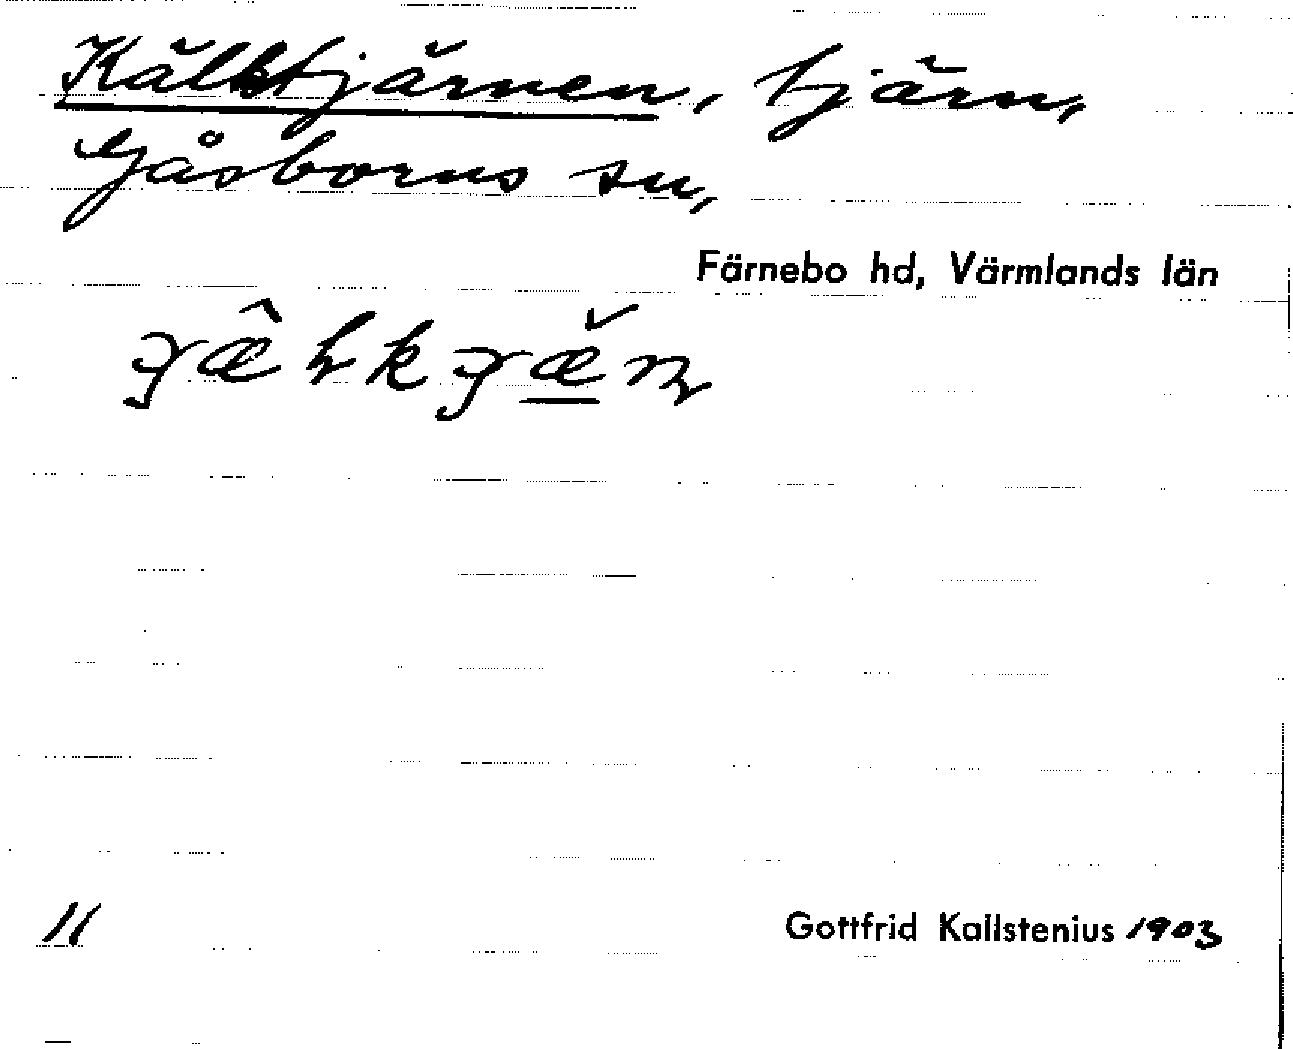 Kälktjärnen, tjärn,
Gåsborns sn,
Färnebo hd, Värmlands län
11
Gottfrid Kallstenius 1903